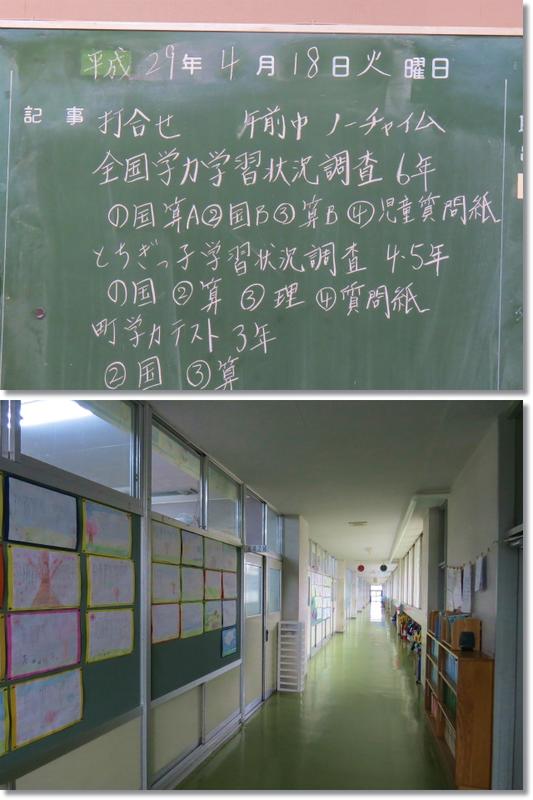 平成29年4月18日火曜日
記事 打合せ 午前中 ノーチャイム
全国学力学習状況調査 6年
①国算A②国B③算B④児童質問紙
とちぎっ子学習状況調査 4・5年
①国 ②算 ③理 ④質問紙
町学力テスト 3年
②国 ③算